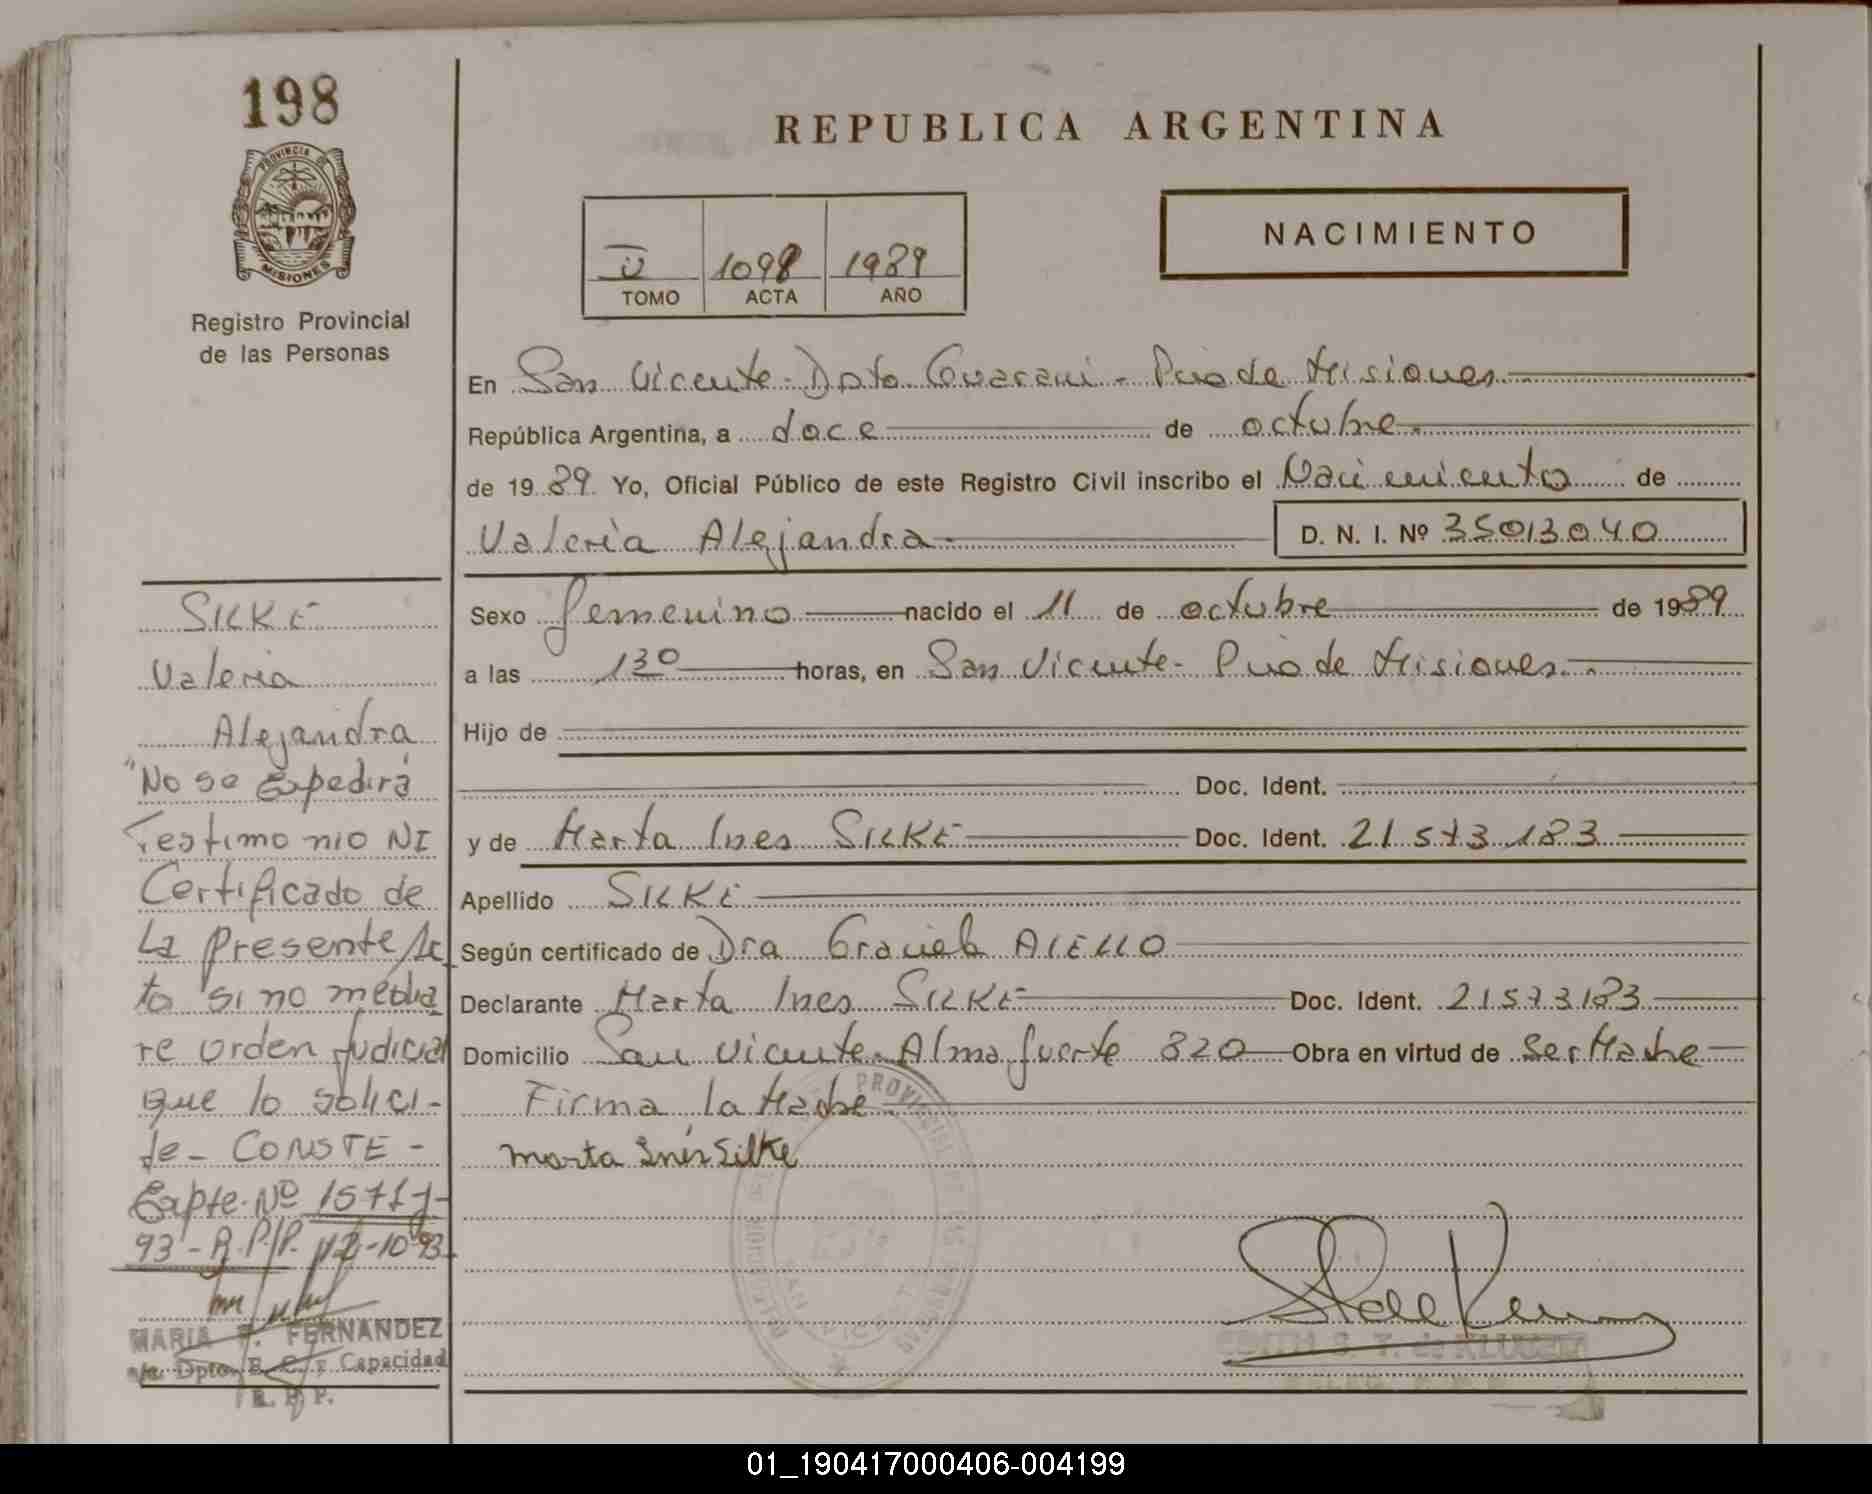 198
PROVINCIA DE
MISIONES
Registro Provincial
de las Personas
REPUBLICA ARGENTINA
NACIMIENTO
II 1098 1989
TOMO ACTA AÑO
En San Vicente - Dpto Guarani - Pcia de Misiones
República Argentina, a doce de octubre
de 1989 Yo, Oficial Público de este Registro Civil inscribo el Nacimiento de
Valeria Alejandra D. N. I. Nº 35013040
Sexo femenino nacido el 11 de octubre de 1989
a las 13º horas, en San Vicente - Pcia de Misiones
Hijo de
Doc. Ident.
y de Marta Ines SILKE Doc. Ident. 21.573.183
Apellido SILKE
Según certificado de Dra Graciela AIELLO
Declarante Marta Ines SILKE Doc. Ident. 21573183
Domicilio San Vicente - Almafuerte 820 Obra en virtud de Ser Madre
Firma la Madre
Marta Inés Silke
SILKE
Valeria
Alejandra
"No se Expedirá
Testimonio NI
Certificado de
La presente Ac
ta si no media
re orden judicial
que lo solici-
de - CONSTE -
Expte. Nº
93 - R.P.P. 12-10-93
MARIA F. FERNANDEZ
Dpto. E. C. y Capacidad
R. P. P.
EDITH S. T. de KLUGE
01_190417000406-004199